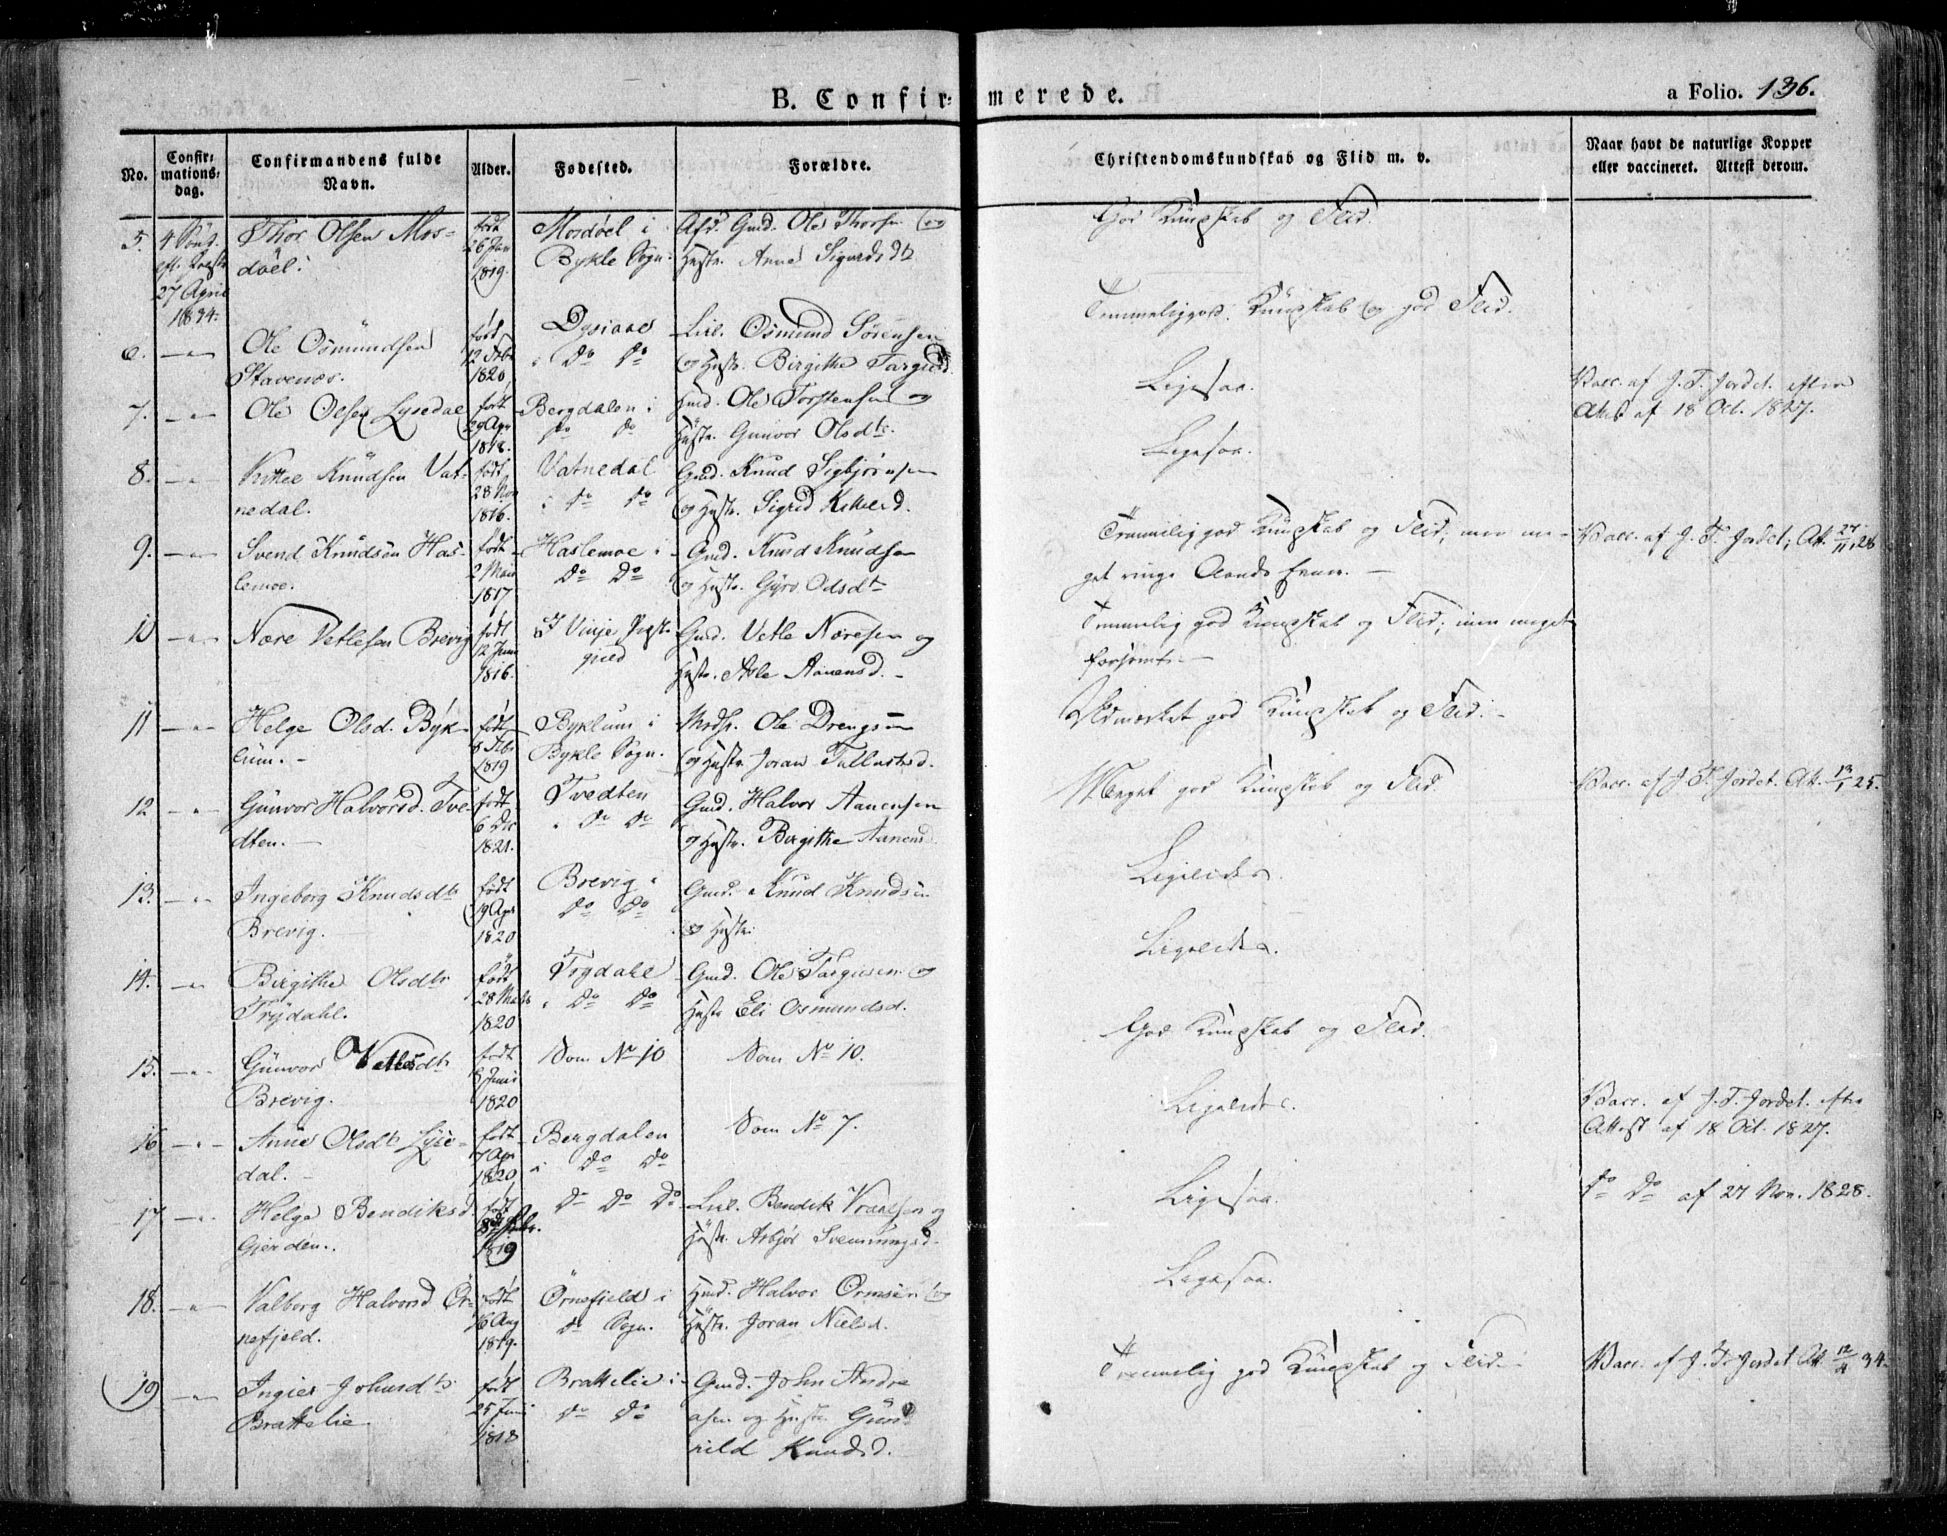 B. Confirmerede.
a Folio. 136.
No.
Confirmationsdag.
Confirmandens fulde Navn.
Alder.
Fødested.
Forældre.
Christendomskundskab og Flid m. v.
Naar havt de naturlige Kopper eller vaccineret. Attest derom.
5.
27 April
1834.
Thor Olsen Mos-
døel.
født
26 Jan
1819.
Mosdøel i
Bykle Sogn.
Afd. Gmd. Ole Thorsen og
Hustr. Anne Sigurdsdt
God Kundskab og Flid.
6.
Ole Osmundsen
Stavenæs.
født
12 Febr
1820
Do Do
Osmund Sørensen
og Hustr. Birgithe
Temmelig god Kundskab og god Flid.
7.
Ole Olsen Lysedal
født
29 Apr
Bergdalen i
Do Do
Gmd. Ole Torstensen og
Hustr. Gunvor Olsdtr.
Ligesaa.
Vacc. af J. T. Jordet. efter
Attest af 18 Oct. 1827.
8.
Knudsen Vat-
nedal.
født
28 Nov
1816.
Vatnedal
i Do Do
Gmd. Knud Sigbjørnsen
og Hustr. Sigrid
Ligesaa.
9.
Svend Knudsen Has-
lemoe.
født
2 Mai
1817
Haslemoe i
Do Do
Gmd. Knud Knudsen
og Hustr. Gyro Olsdt
Temmelig god Kundskab og Flid; men me-
get ringe Aands Evner.
Vacc. af J. T. Jordet; Att. 27/11 28
10
Nore Vetlesen Brevig
født
12 Juni
1816.
I Vinje Præste
gjeld
Gmd. Vetle Noresen og
Hustr. Asle Aanensd.
Temmelig god Kundskab og Flid; men meget
forsømt.
11
Helge Olsd. Byk-
lum.
født
8 Febr
1819
Byklum i
Bykle Sogn.
Ole Drengsen
og Hustr. Joran
Udmærket god Kundskab og Flid.
12
Gunvor Halvorsd. Tve-
dten.
født
6 Dec
1821.
Tvedten
Do Do
Gmd. Halvor Aanensen
og Hustr. Birgithe Aanensd
Meget god Kundskab og Flid.
Vacc. af J. T. Jordet. Att. 13/1 25.
13.
Ingeborg Knudsdtr
Brevig.
født
19 Apr
1820
Brevig i
Do Do
Gmd. Knud Knudsen
og Hustr.
Ligeledes.
14.
Birgithe Olsdtr
Trydahl.
født
28 Marts
1820
Trydahl
i Do Do
Gmd. Ole Targiesen og
Hustr Eli Osmundsd.
Ligeledes.
15.
Gunvor Vetlesdtr
Brevig.
født
8 Juni
1820
Som No 10
Som No 10.
God Kundskab og Flid.
16
Anne Olsdtr Lyse-
dal.
født
17 Apr
1820
Bergdalen
i Do Do
Som No 7.
Ligeledes.
Vacc. af J. T. Jordet. efter
Attest af 18 Oct. 1827.
17
Helge Bendiksd.
Gjerden.
født
1819
Do Do Do
Bendik Vraalsen og
Hustr. Asbjør Svenningsd.
Ligesaa.
Do Do af 27 Nov. 1828.
18.
Valborg Halvorsd Ør-
nefjeld.
født
16 Aug
1819.
Ørnefjeld i
Do Sogn.
Halvor Ormsen og
Hustr. Joran Nielsd.
Ligesaa.
19
Ingier Johnsdtr
Brattelie
født
25 Juni
1818
Brattelie i
Do Do
Gmd. John Andre
asen og Hustr. Gun-
hild Knudsd.
Temmelig god Kundskab og Flid.
Vacc. af J. T. Jordet Att 12/4 34.